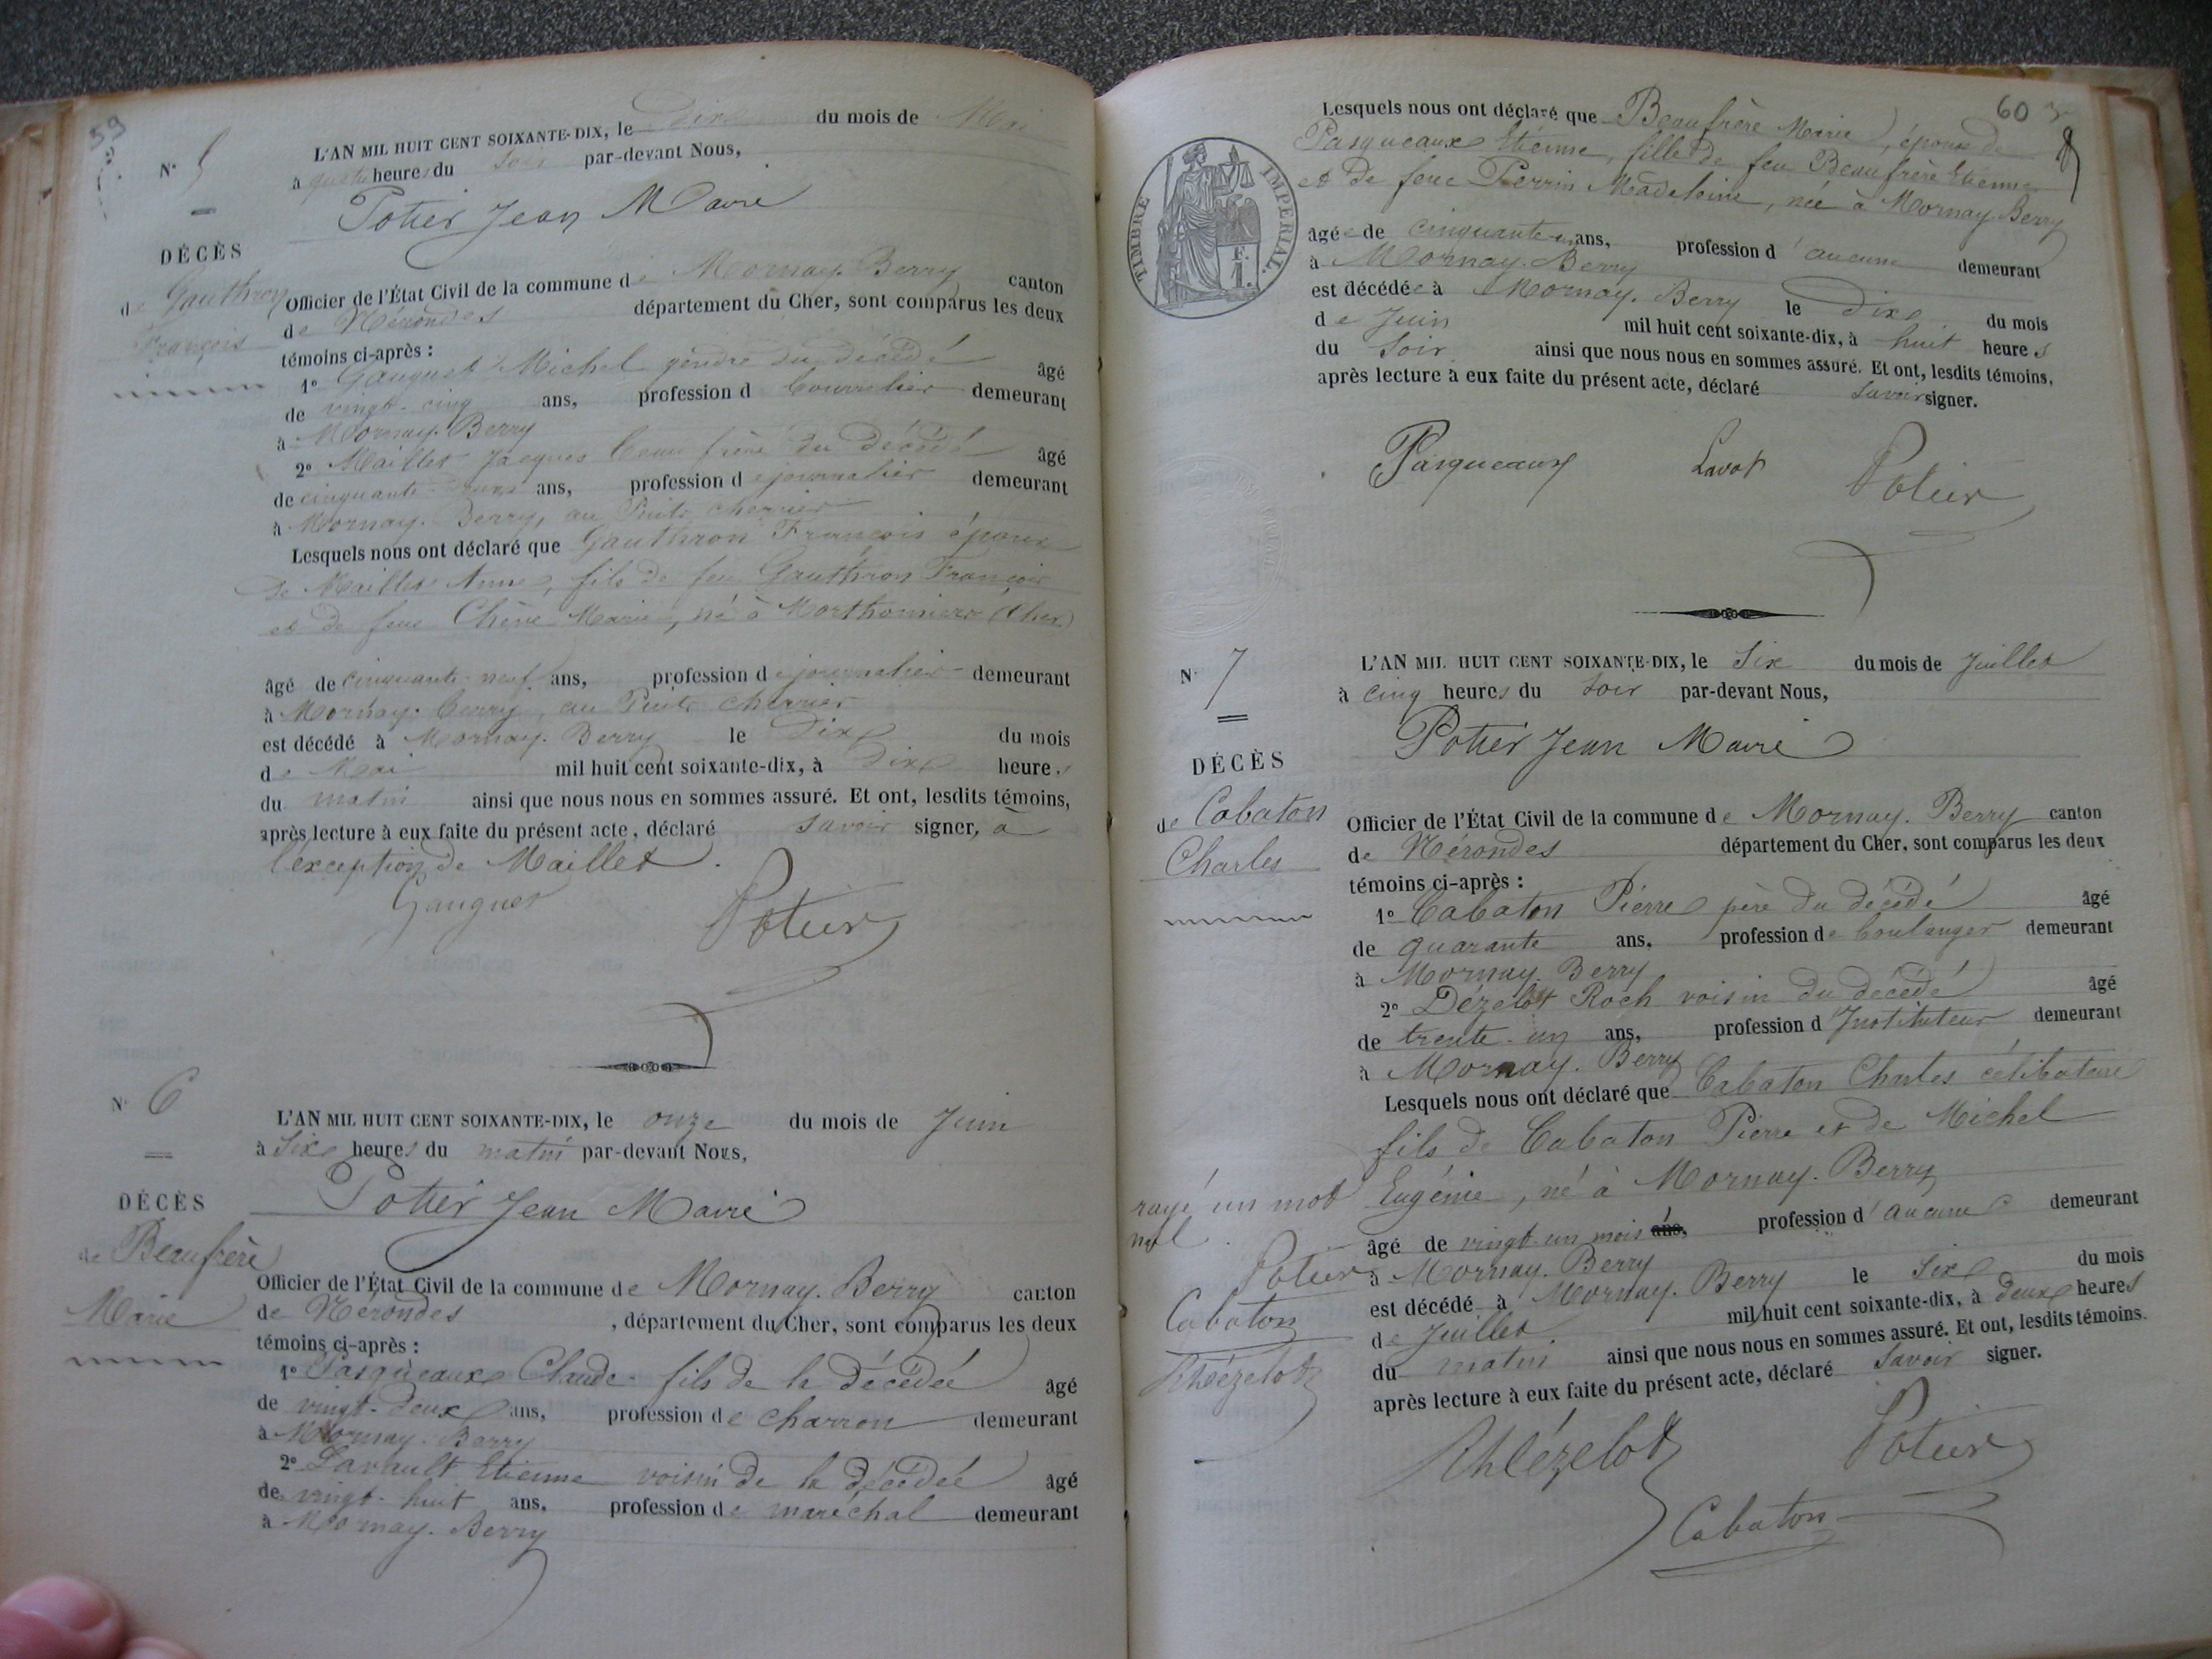 59
N° 5
L'AN MIL HUIT CENT SOIXANTE-DIX, le Dix du mois de Mai
à quatre heures du Soir par-devant Nous,
Potier Jean Maire
DÉCÈS
de Gauthron
François
Officier de l'État Civil de la commune de Mornay-Berry canton
de Nérondes département du Cher, sont comparus les deux
témoins ci-après :
1° Gauguet Michel gendre du décédé âgé
de vingt-cinq ans, profession d bourrelier demeurant
à Mornay-Berry
2° Maillet Jacques beau frère du décédé âgé
de cinquante ans, profession de journalier demeurant
à Mornay-Berry, au Puits cherrier
Lesquels nous ont déclaré que Gauthron François époux
de Maillet Anne, fils de feu Gauthron François
et de feue Chêne Marie, né à Morthomiers (Cher)
âgé de cinquante-neuf ans, profession de journalier demeurant
à Mornay-berry, au Puits cherrier
est décédé à Mornay-Berry le Dix du mois
de Mai mil huit cent soixante-dix, à Dix heures
du matin ainsi que nous nous en sommes assuré. Et ont, lesdits témoins,
après lecture à eux faite du présent acte, déclaré Savoir signer, à
l'exception de Maillet.
Gauguet Potier
N° 6
L'AN MIL HUIT CENT SOIXANTE-DIX, le onze du mois de Juin
à Six heures du matin par-devant Nous,
Potier Jean Maire
DÉCÈS
de Beaufrère
Marie
Officier de l'État Civil de la commune de Mornay-Berry canton
de Nérondes, département du Cher, sont comparus les deux
témoins ci-après :
1° Pasqueaux Claude fils de la décédée âgé
de vingt-deux ans, profession de charron demeurant
à Mornay-Berry
2° Lavault Etienne voisin de la décédée âgé
de vingt-huit ans, profession de maréchal demeurant
à Mornay-Berry
60
TIMBRE IMPÉRIAL.
1 F.
Lesquels nous ont déclaré que Beaufrère Marie, épouse de
Pasqueaux Etienne, fille de feu Beaufrère Etienne
et de feue Perrin Madeleine, née à Mornay-Berry
âgée de cinquante-un ans, profession d'aucune demeurant
à Mornay-Berry
est décédée à Mornay-Berry le Dix du mois
de Juin mil huit cent soixante-dix, à huit heures
du Soir ainsi que nous nous en sommes assuré. Et ont, lesdits témoins,
après lecture à eux faite du présent acte, déclaré Savoir signer.
Pasqueaux Lavot Potier
N° 7
L'AN MIL HUIT CENT SOIXANTE-DIX, le Six du mois de Juillet
à cinq heures du Soir par-devant Nous,
Potier Jean Maire
DÉCÈS
de Cabaton
Charles
Officier de l'État Civil de la commune de Mornay-Berry canton
de Nérondes département du Cher, sont comparus les deux
témoins ci-après :
1° Cabaton Pierre père du décédé âgé
de quarante ans, profession de boulanger demeurant
à Mornay-Berry
2° Dézelot Roch voisin du décédé âgé
de trente-un ans, profession d'Instituteur demeurant
à Mornay-Berry
Lesquels nous ont déclaré que Cabaton Charles célibataire
fils de Cabaton Pierre et de Michel
Eugénie, né à Mornay-Berry
âgé de vingt-un mois ans, profession d'aucune demeurant
à Mornay-Berry
est décédé à Mornay-Berry le Six du mois
de Juillet mil huit cent soixante-dix, à deux heures
du matin ainsi que nous nous en sommes assuré. Et ont, lesdits témoins,
après lecture à eux faite du présent acte, déclaré Savoir signer.
rayé un mot
nul.
Potier
Cabaton
RhDézelot
RhDézelot Potier
Cabaton